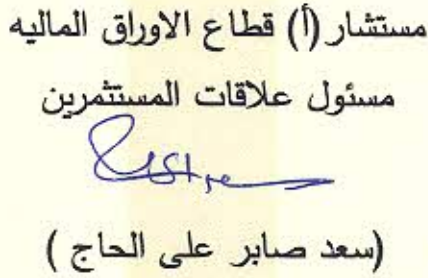 مستشار (أ) قطاع الاوراق الماليه
مسئول علاقات المستثمرين
(سعد صابر على الحاج )